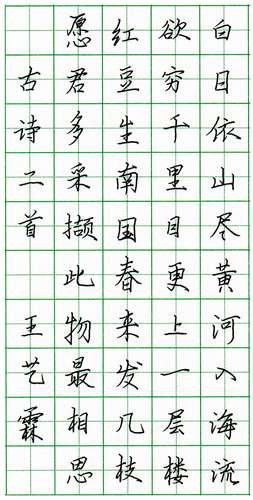 白日依山尽黄河入海流
欲穷千里目更上一层楼
红豆生南国春来发几枝
愿君多采撷此物最相思
古诗二首王艺霖